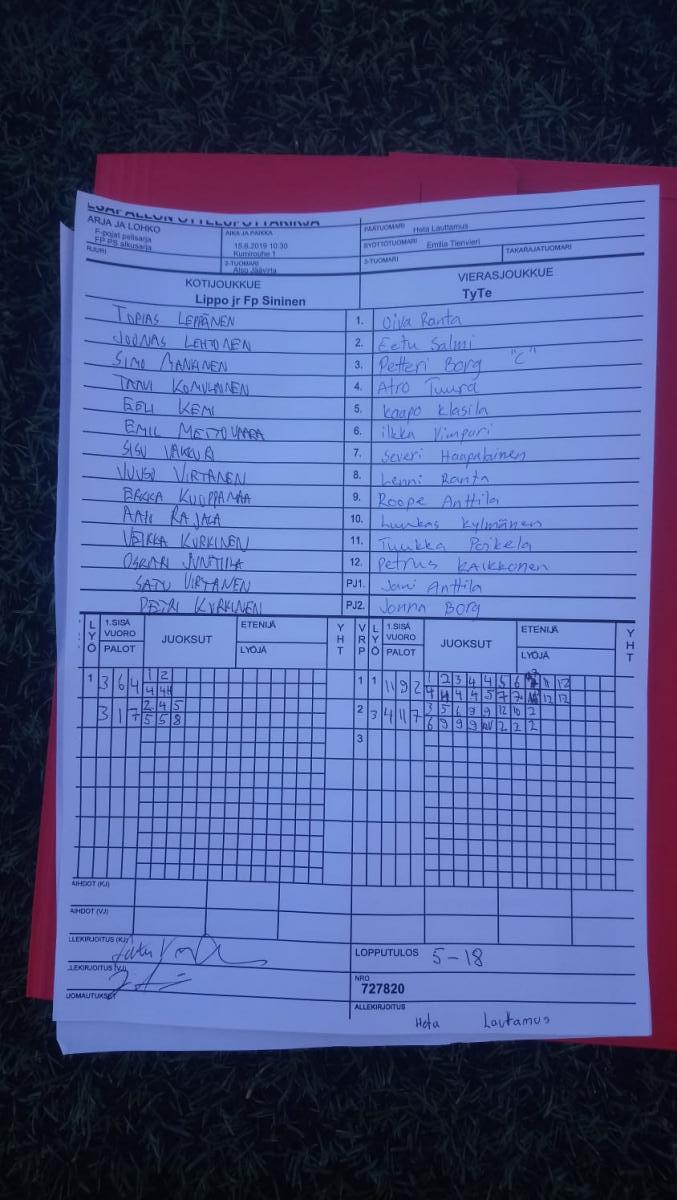 ARJA JA LOHKO
F-pojat pelisarja
FP PS alkusarja
AIKA JA PAIKKA
15.6.2019 10:30
Kurnirouhe 1
2-TUOMARI
Atso Jäävirta
PÄÄTUOMARI Heta Lauttamus
SYÖTTÖTUOMARI Emilia Tienvieri
3-TUOMARI
TAKARAJATUOMARI
KOTIJOUKKUE
Lippo jr Fp Sininen
VIERASJOUKKUE
TyTe
TOPIAS LEPPÄNEN 1. Oiva Ranta
JOONAS LEHTONEN 2. Eetu Salmi
SIMO MANANEN 3. Petteri Borg "C"
TAAVI KOMULAINEN 4. Atro Tuura
EELI KEMI 5. Kaapo Klasila
EMIL METTOVAARA 6. ilkka Vimpari
SISU 7. Severi Haapalainen
VUUSO VIRTANEN 8. Lenni Ranta
ERKKA KUOPPAMAA 9. Roope Anttila
RAJALA 10. Luukas Kylmänen
VEIKKA KURKINEN 11. Tuukka Poikela
OSKARI JUNTTILA 12. Petrus KAIKKONEN
SATU VIRTANEN PJ1. Jani Anttila
PETRI KURKINEN PJ2. Jonna Borg
LYÖ 1.SISÄ VUORO PALOT JUOKSUT ETENIJÄ LYÖJÄ YHT VRP LYÖ 1.SISÄ VUORO PALOT JUOKSUT ETENIJÄ LYÖJÄ YHT
1 3 6 4 1 2 1 1 11 9 2 1 2 3 4 4 5 6 11 12
4 4 4 4 4 5 7 7 12 12
3 1 7 2 4 5 2 3 4 11 7 3 5 6 9 9 12 10 2
5 5 8 6 9 9 9 2 2 2
3
AIHDOT (KJ)
AIHDOT (VJ)
LLEKIRJOITUS (KJ)
LLEKIRJOITUS (VJ)
UOMAUTUKSET
LOPPUTULOS 5-18
NRO
727820
ALLEKIRJOITUS
Heta Lautamus